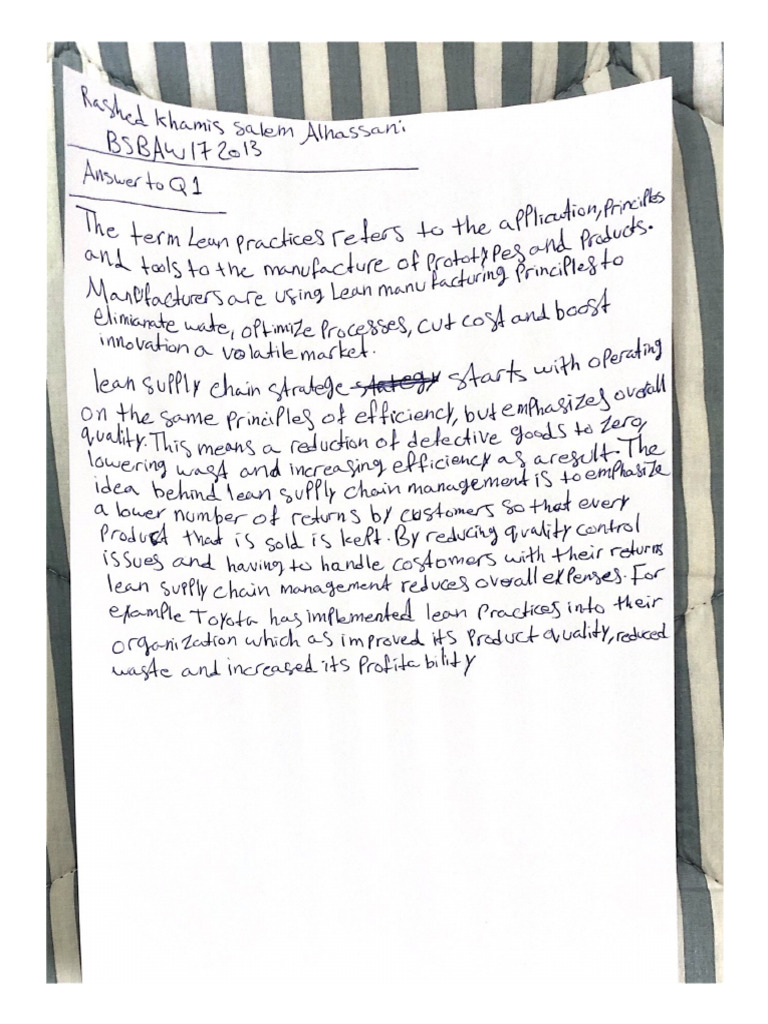 Rashed Khamis Salem Alhassani
BSBAW172013
Answer to Q1
The term Lean practices refers to the application, Principles
and tools to the manufacture of Prototypes and Products.
Manufacturers are using Lean manufacturing Principles to
elimianate wate, optimize Processes, cut cost and boost
innovation a volatile market.
lean supply chain stratege stategy starts with operating
on the same Principles of efficiency, but emphasizes overall
quality. This means a reduction of defective goods to zero,
lowering wast and increasing efficiency as a result. The
idea behind lean supply chain management is to emphasize
a lower number of returns by customers so that every
Product that is sold is kept. By reducing quality control
issues and having to handle costomers with their returns
lean supply chain management reduces overall expenses. For
example Toyota has implemented lean Practices into their
organization which as improved its Product quality, reduced
waste and increased its Profitability